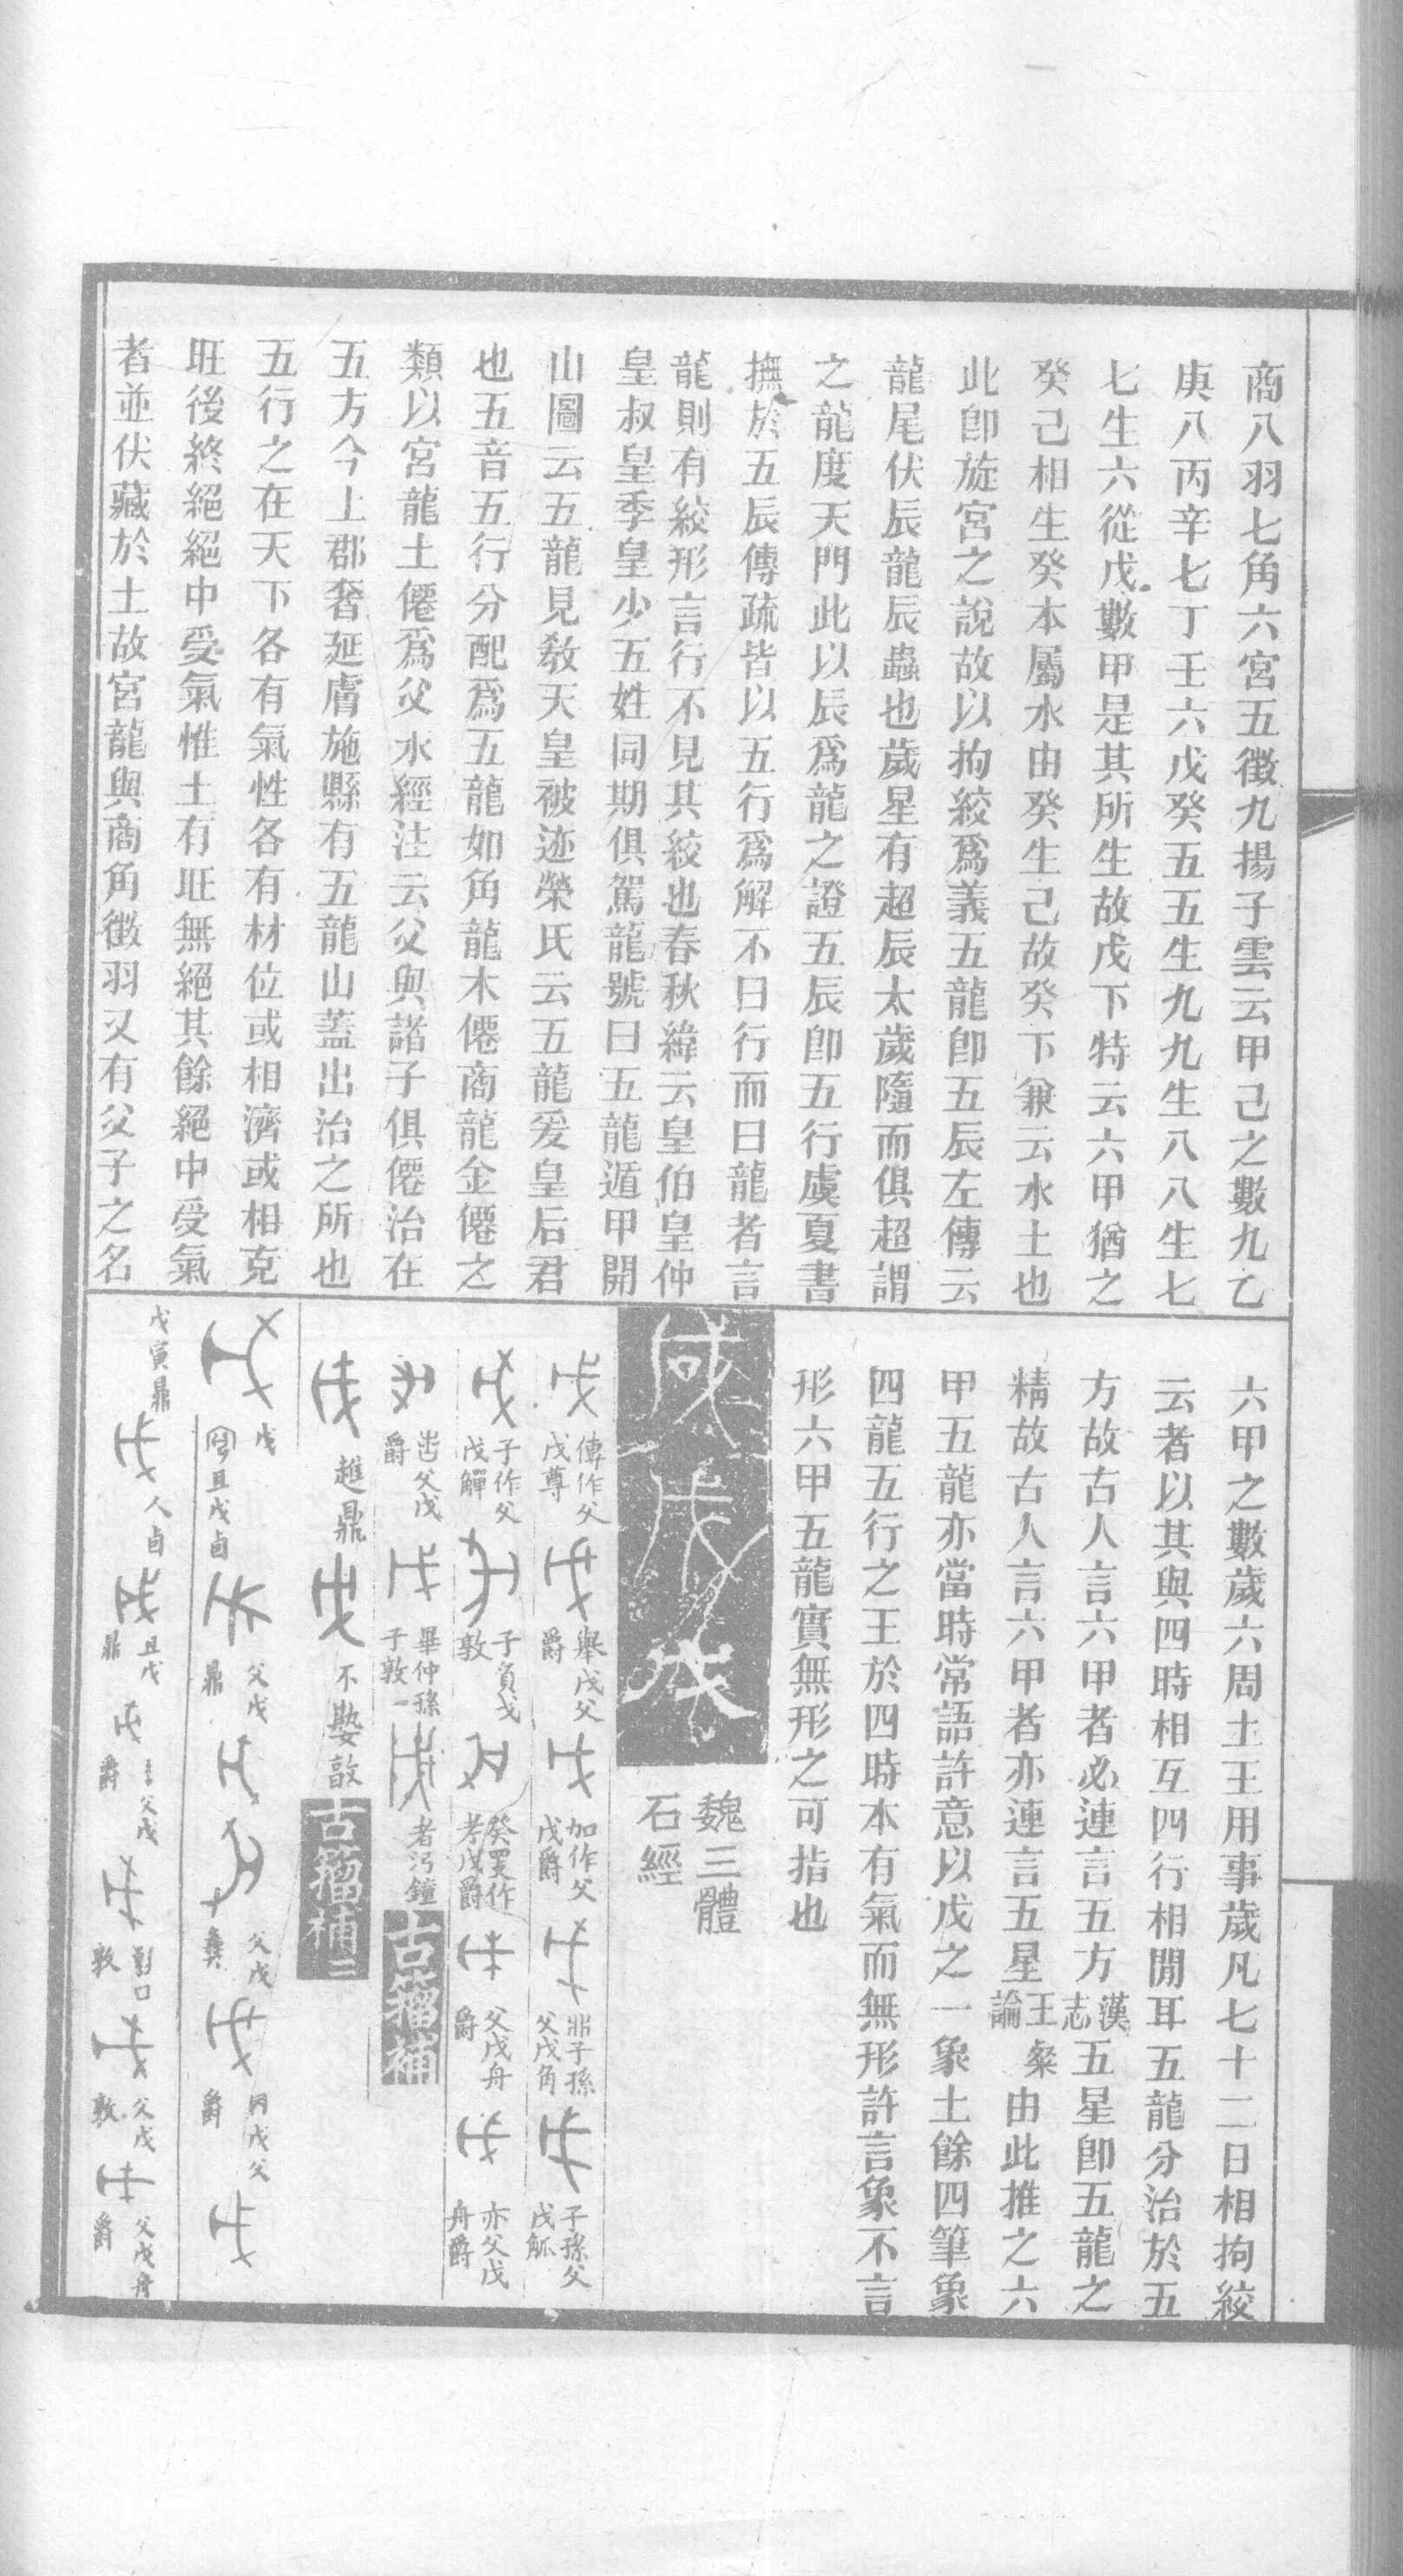 商八羽七角六宮五徵九揚子雲云甲己之數九乙
庚八丙辛七丁壬六戊癸五五生九九生八八生七
七生六從戊數甲是其所生故戊下特云六甲猶之
癸己相生癸本屬水由癸生己故癸下兼云水土也
此卽旋宮之說故以拘絞爲義五龍卽五辰左傳云
龍尾伏辰龍辰蟲也歲星有超辰太歲隨而俱超謂
之龍度天門此以辰爲龍之證五辰卽五行虞夏書
撫於五辰傳疏皆以五行爲解不曰行而曰龍者言
龍則有絞形言行不見其絞也春秋緯云皇伯皇仲
皇叔皇季皇少五姓同期俱駕龍號曰五龍遁甲開
山圖云五龍見教天皇被迹榮氏云五龍爰皇后君
也五音五行分配爲五龍如角龍木僊商龍金僊之
類以宮龍土僊爲父水經注云父與諸子俱僊治在
五方今上郡奢延膚施縣有五龍山蓋出治之所也
五行之在天下各有氣性各有材位或相濟或相克
旺後終絕絕中受氣惟土有旺無絕其餘絕中受氣
者並伏藏於土故宮龍與商角徵羽又有父子之名
六甲之數歲六周土王用事歲凡七十二日相拘絞
云者以其與四時相互四行相閒耳五龍分治於五
方故古人言六甲者必連言五方漢志五星卽五龍之
精故古人言六甲者亦連言五星王粲論由此推之六
甲五龍亦當時常語許意以戊之一象土餘四筆象
四龍五行之王於四時本有氣而無形許言象不言
形六甲五龍實無形之可指也
魏三體
石經
傳作父戊尊
舉戊父爵
加作父戊爵
子孫父戊角
子孫父戊觚
子作父戊觶
子負戈敦
癸㚸作考戊爵
父戊舟爵
亦父戊舟爵
父戊爵
畢仲孫子敦
者污鐘
古籀補
趞鼎
不𡢁敦
古籀補二
戊
且戊卣
父戊鼎
父戊彝
同戊父爵
戊寅鼎
人卣
且戊鼎
父戊爵
敦
父戊敦
父戊舟爵